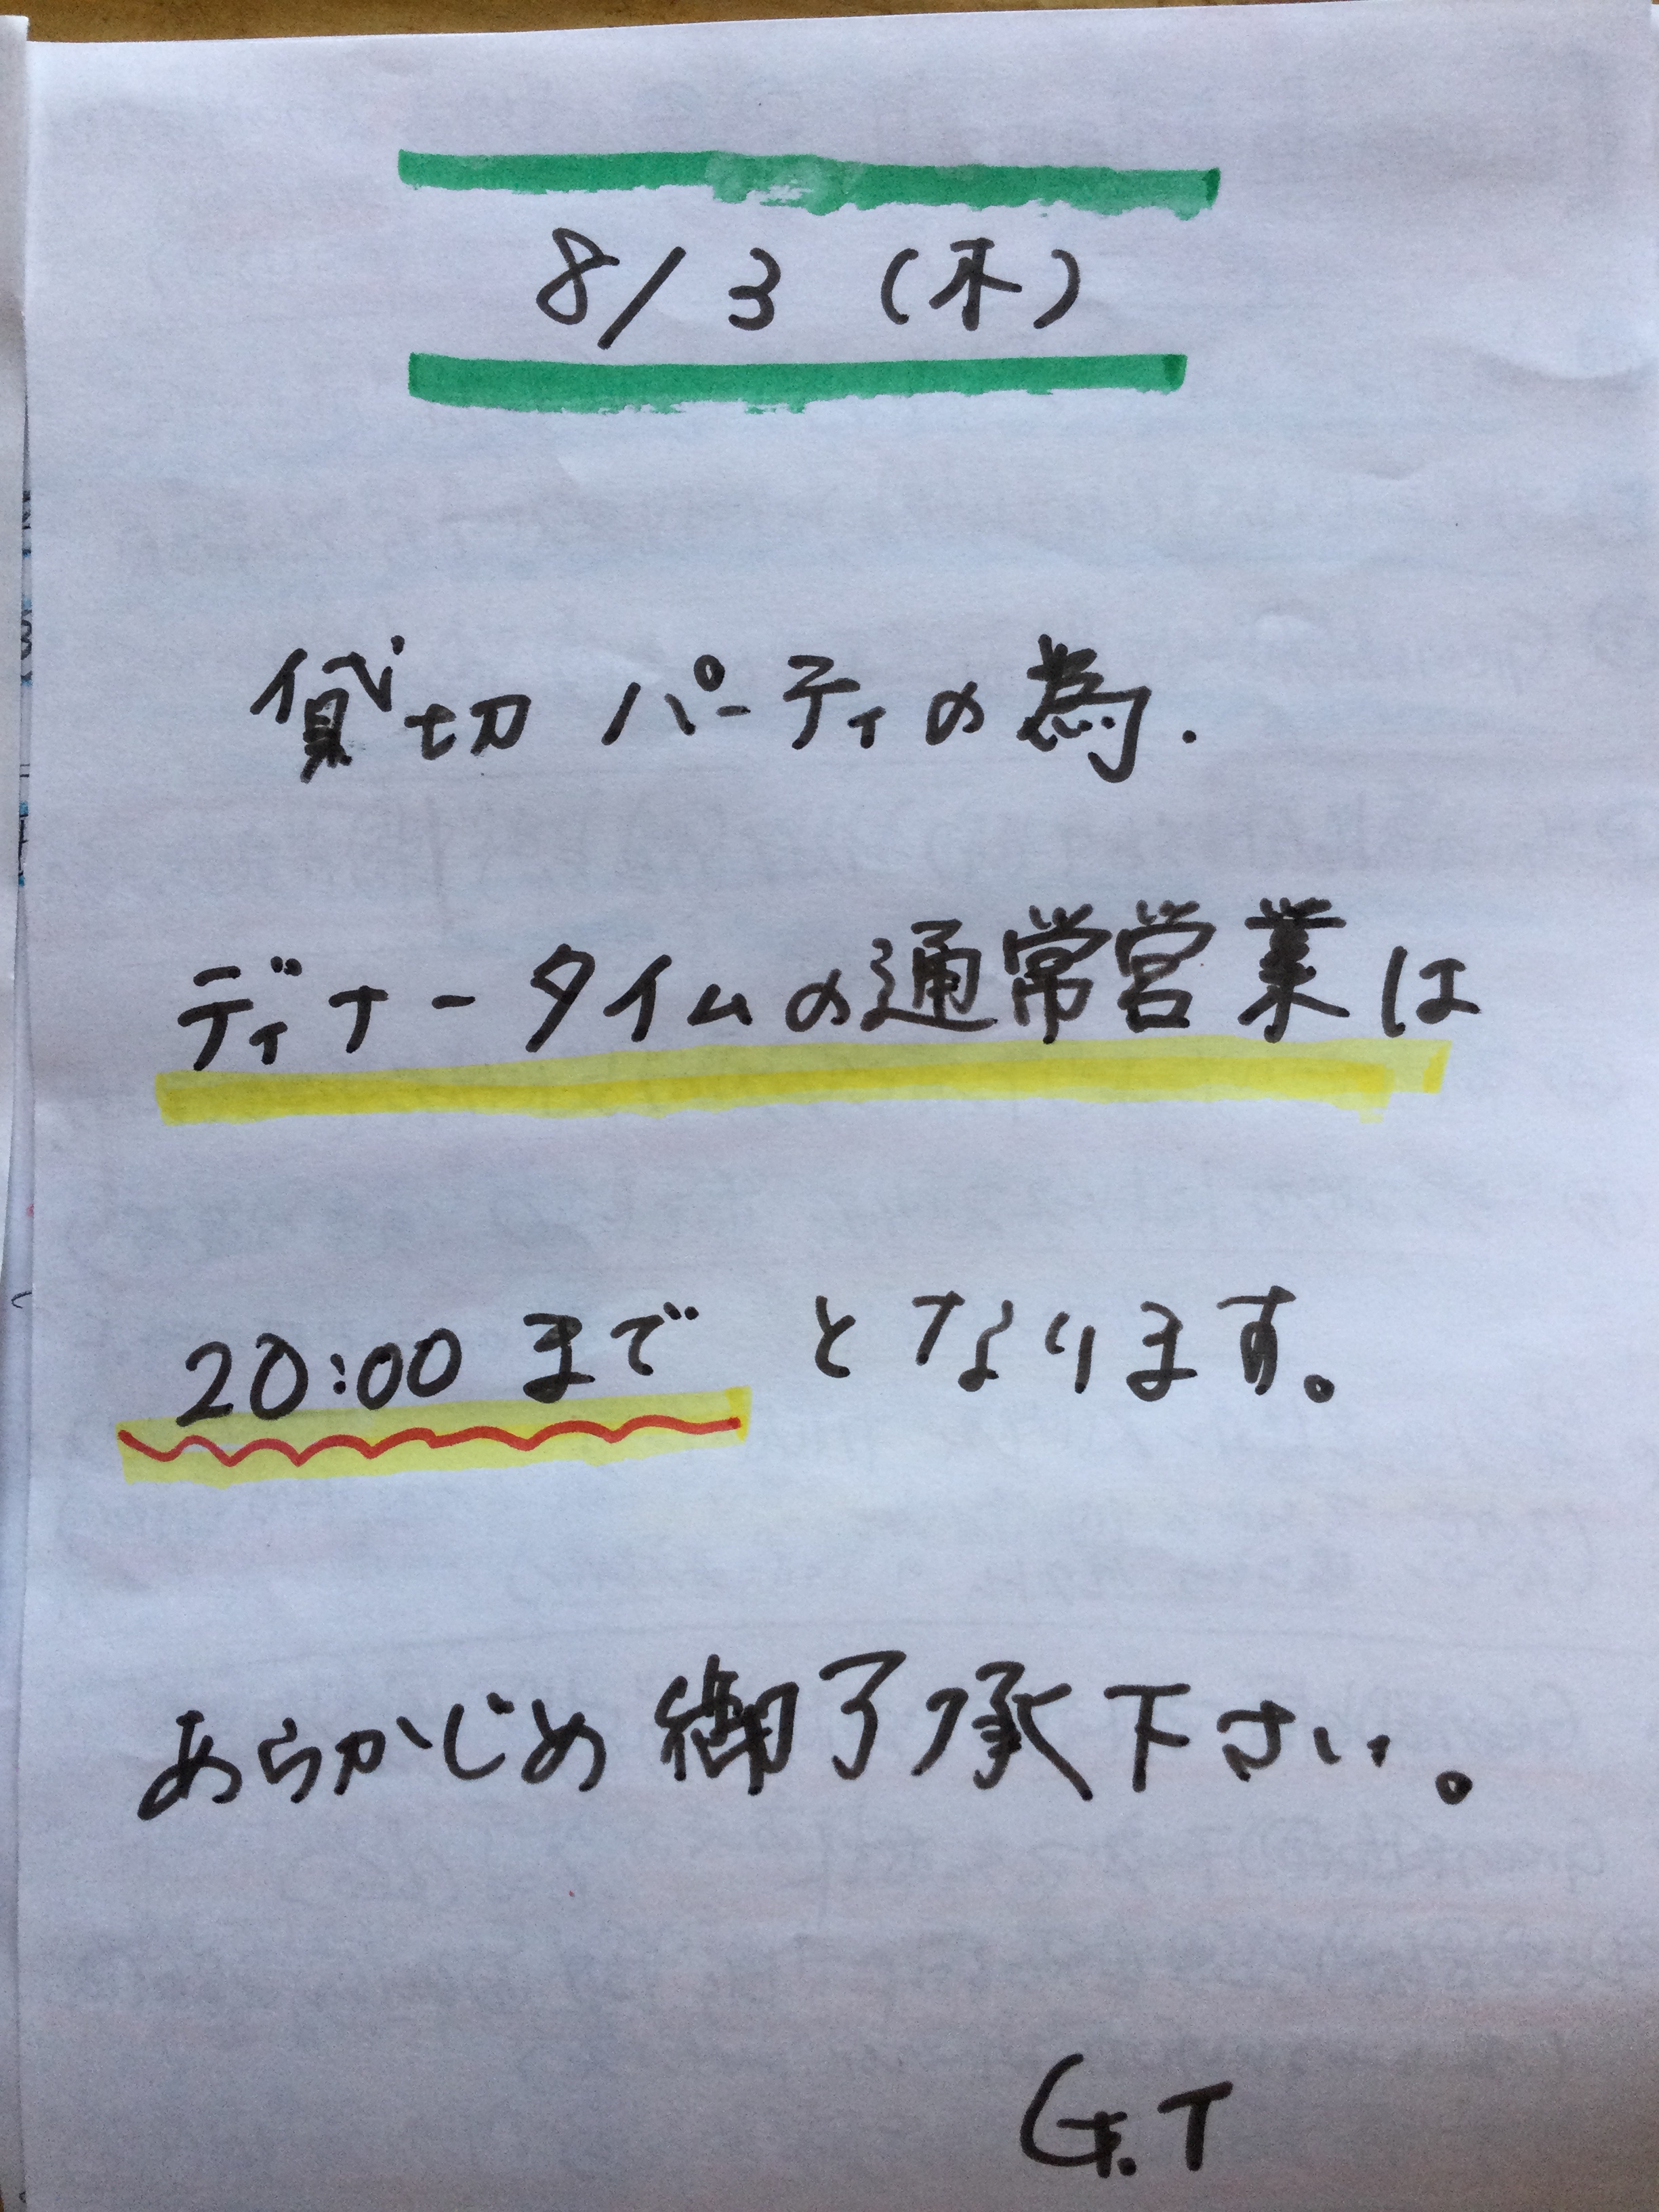 8/3 (木)
貸切 パーティの為.
ディナータイムの通常営業は
20:00 まで となります。
あらかじめ御了承下さい。
G.T